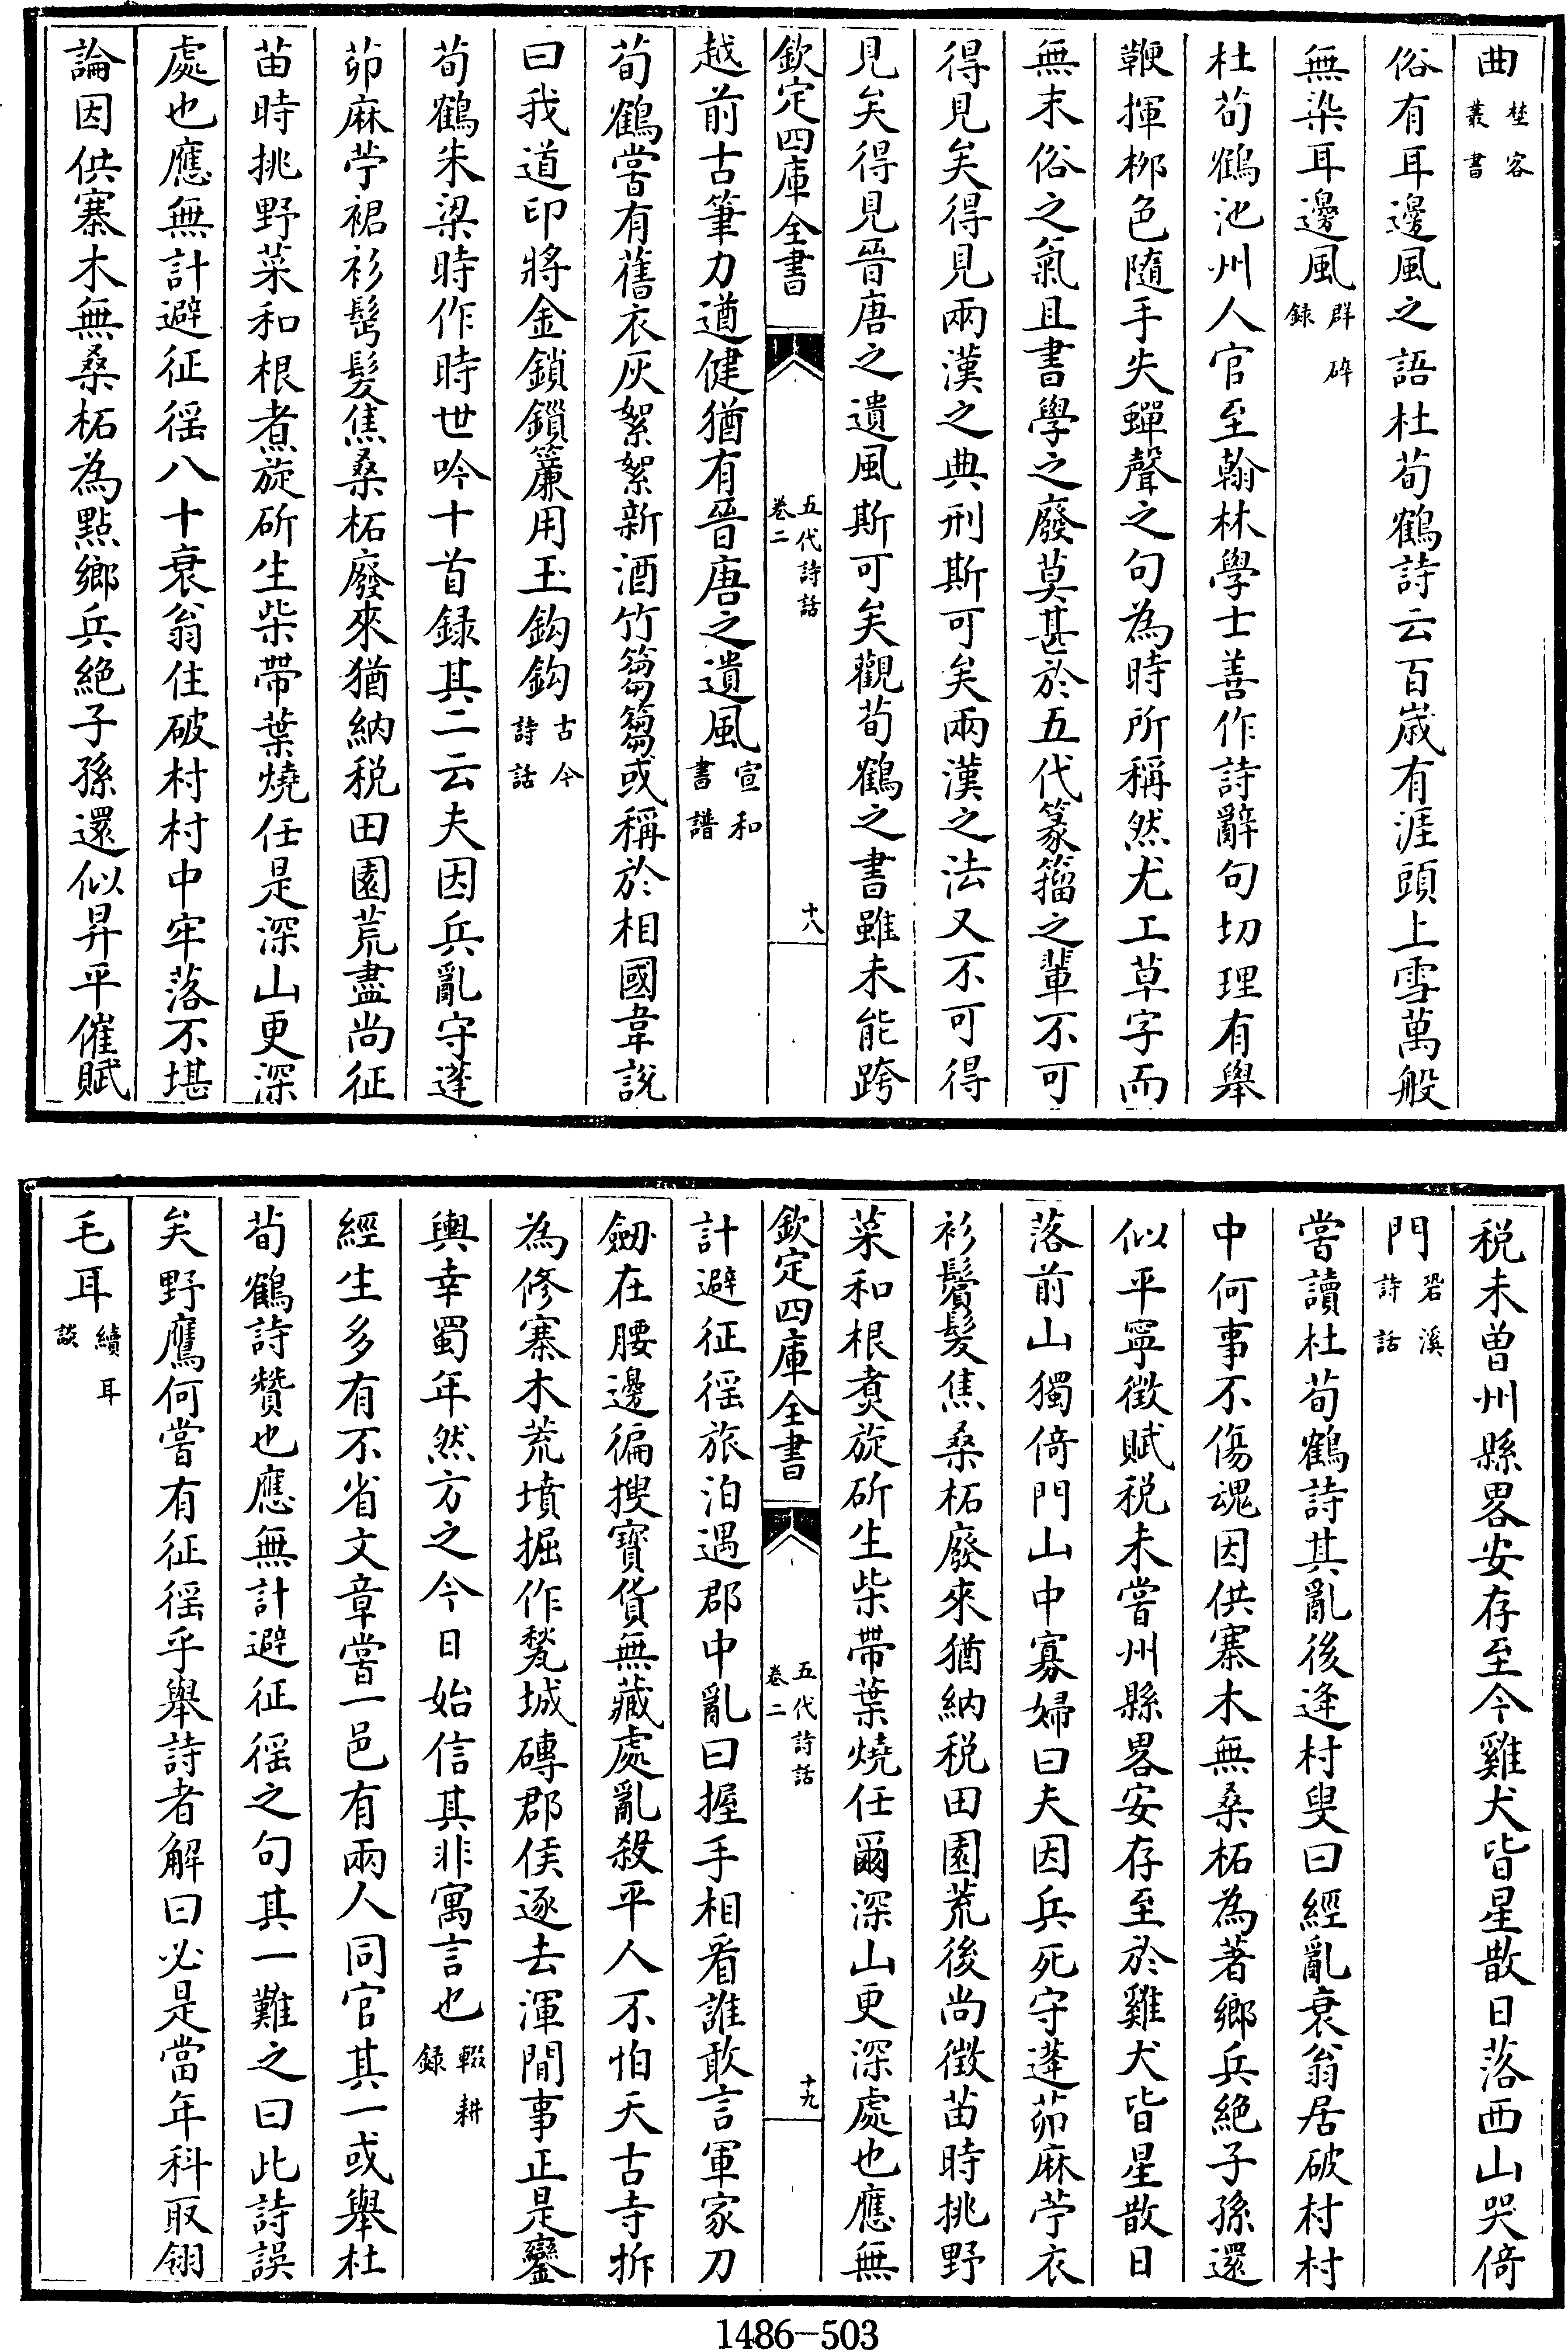 曲埜客叢書
俗有耳邊風之語杜荀鶴詩云百歳有涯頭上雪萬般
無染耳邊風群碎録
杜荀鶴池州人官至翰林學士善作詩辭句切理有舉
鞭揮栁色隨手失蟬聲之句為時所稱然尤工草字而
無末俗之氣且書學之廢莫甚於五代篆籀之軰不可
得見矣得見兩漢之典刑斯可矣兩漢之法又不可得
見矣得見晉唐之遺風斯可矣觀荀鶴之書雖未能跨
欽定四庫全書 五代詩話 卷二 十八
越前古筆力遒健猶有晉唐之遺風宣和書譜
荀鶴嘗有舊衣灰絮絮新酒竹篘篘或稱於相國韋說
曰我道印將金鎖鎖簾用玉鈎鈎古今詩話
荀鶴朱梁時作時世吟十首録其二云夫因兵亂守蓬
茆麻苧裙衫髩髮焦桑柘廢來猶納税田園荒盡尚征
苗時挑野菜和根煮旋斫生柴帶葉燒任是深山更深
處也應無計避征徭八十衰翁住破村村中牢落不堪
論因供寨木無桑柘為點鄉兵絶子孫還似昇平催賦
税未曽州縣畧安存至今雞犬皆星散日落西山哭倚
門䂬溪詩話
嘗讀杜荀鶴詩其亂後逄村叟曰經亂衰翁居破村村
中何事不傷魂因供寨木無桑柘為著鄉兵絶子孫還
似平寧徵賦税未嘗州縣畧安存至於雞犬皆星散日
落前山獨倚門山中寡婦曰夫因兵死守蓬茆麻苧衣
衫鬢髮焦桑柘廢來猶納税田園荒後尚徵苗時挑野
菜和根煮旋斫生柴帶葉燒任爾深山更深處也應無
欽定四庫全書 五代詩話 卷二 十九
計避征徭旅泊遇郡中亂曰握手相看誰敢言軍家刀
劒在腰邊徧搜寳貨無藏處亂殺平人不怕天古寺拆
為修寨木荒墳掘作甃城磚郡侯逐去渾閒事正是鑾
輿幸蜀年然方之今日始信其非寓言也輟耕録
經生多有不省文章嘗一邑有兩人同官其一或舉杜
荀鶴詩贊也應無計避征徭之句其一難之曰此詩誤
矣野鷹何嘗有征徭乎舉詩者解曰必是當年科取翎
毛耳續耳談
1486-503